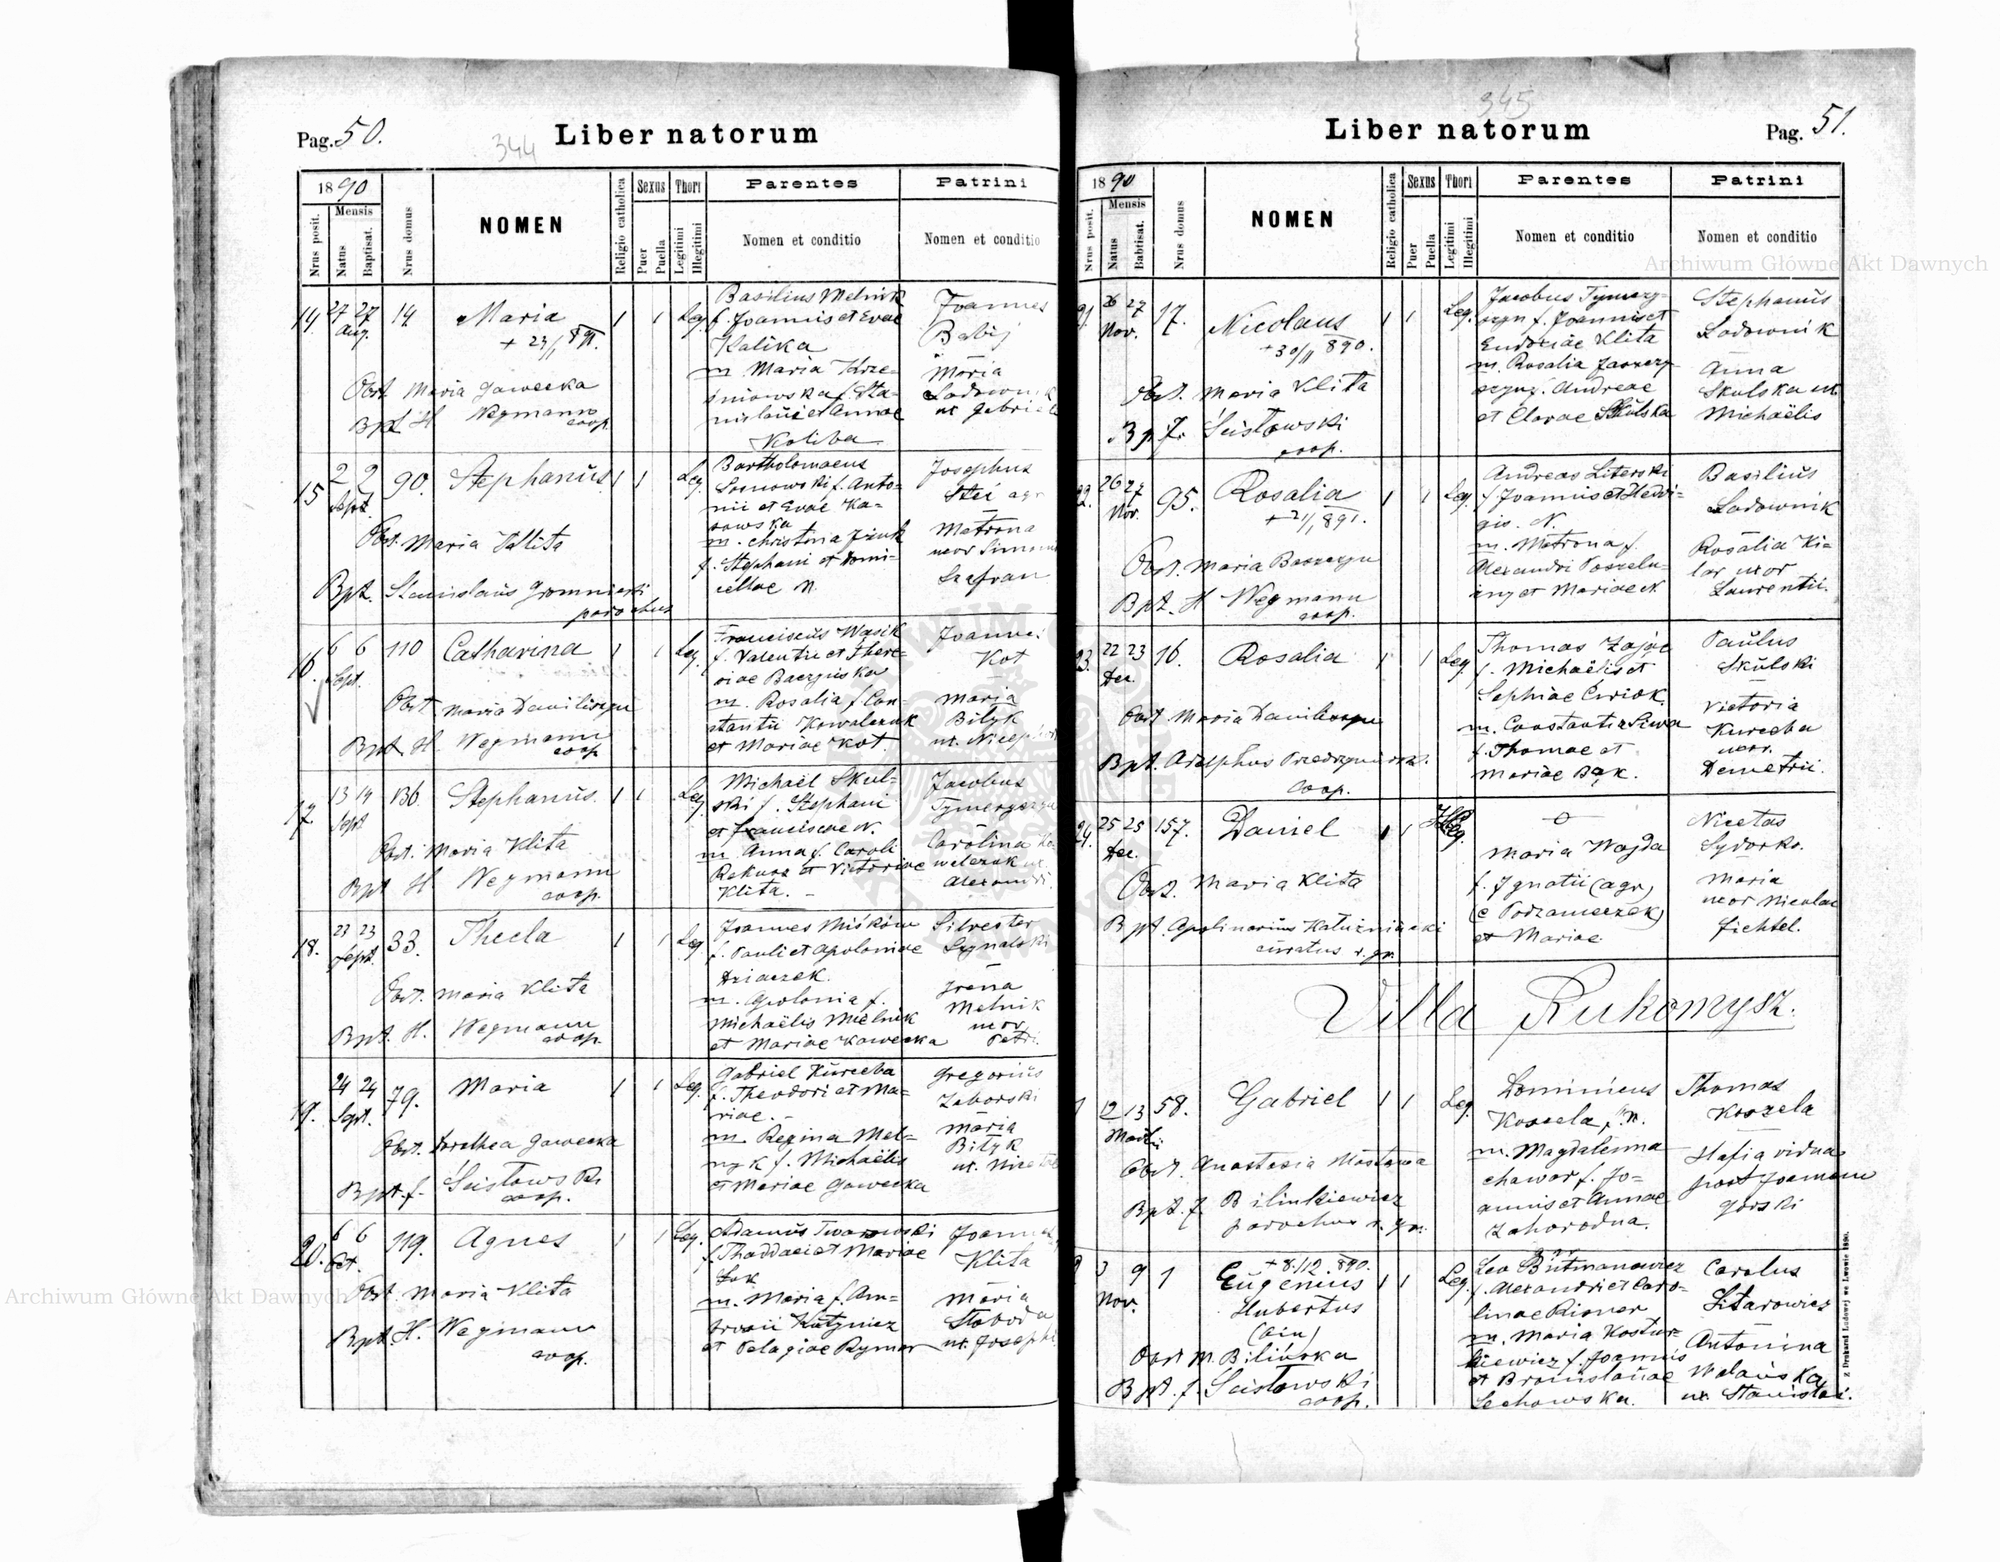 Pag. 50.
344
Liber natorum
1890
Nrus posit.
Mensis
Natus
Baptisat.
Nrus domus
NOMEN
Religio catholica
Sexus
Puer
Puella
Thori
Legitimi
Illegitimi
Parentes
Nomen et conditio
Patrini
Nomen et conditio
14 27 27 14. Maria 1 1 Leg.
Aug.
+ 23/1 891.
Obst. Maria Gawecka
Bpt H Wegmann
coop.
Basilius Melnik
f. Joannis et Evae
Kalika
m. Maria Krze-
śniowska f. Sta-
nislai et Annae
Koliba
Joannes
Babij
Maria
Ladownik
ux Gabrie
15 2 2 90. Stephanus 1 1 Leg.
Sept.
Obst. Maria Klita
Bpt. Stanislaus Gromnicki
parochus
Bartholomaeus
Sosnowski f. Anto-
nii et Evae Ka-
sowska
m. Christina
f. Stephani et Domi-
cellae N.
Josephus
agr
Matrona
uxor Simonis
Szafran
16. 6 6 110 Catharina 1 1 Leg.
Sept.
Obst Maria Daniliszyn
Bpt H Wegmann
coop
Franciscus Wąsik
f. Valentii et There-
siae Baczyńska
m. Rosalia f. Con-
stantii Kowalczuk
et Mariae Kot.
Joannes
Kot
Maria
Bilyk
ux. Nicephor
17 13 14 136. Stephanus. 1 1 Leg.
Sept
Obst. Maria Klita
Bpt H Wegmann
coop.
Michaël Skul-
ski f. Stephani
et Franciscae N.
m Anna f. Caroli
et Victoriae
Klita.
Jacobus
Tymeryszyn
Carolina Ko-
walczuk ux.
Alexandri.
18. 23 23 33. Thecla 1 1 Leg.
Sept.
Obst. Maria Klita
Bpt. H. Wegmann
coop.
Joannes Miśków
f. Pauli et Apoloniae
Dziaczek.
m. Apolonia f.
Michaëlis Mielnik
et Mariae Kawecka
Silvester
Sygnatski
Irena
Melnik
uxor
Petri.
19. 24 24 79. Maria 1 1 Leg.
Sept.
Obst. Dorothea Gawecka
Bpt. f. Ścisłowski
coop.
Gabriel Kureeba
f. Theodori et Ma-
riae.
m Regina Mel-
nyk f. Michaëlis
et Mariae Gawecka
Gregorius
Zaborski
Maria
Bilyk
ux.
20. 6 6 119. Agnes 1 1 Leg.
Oct.
Obst. Maria Klita
Bpt. H. Wegmann
coop.
Adamus Twarowski
f. Thaddaei et Mariae
m. Maria f. Am-
brosii
et Pelagiae Rymar
Joannes
Klita
Maria
Słoboda
ux. Josephi
345
Liber natorum
Pag. 51.
1890
Nrus posit.
Mensis
Natus
Babtisat.
Nrus domus
NOMEN
Religio catholica
Sexus
Puer
Puella
Thori
Legitimi
Illegitimi
Parentes
Nomen et conditio
Patrini
Nomen et conditio
21. 26 27 17. Nicolaus 1 1 Leg.
Nov.
+ 30/11 890.
Obst. Maria Klita
Bp. f. Ścisłowski
coop.
Jacobus Tymery-
szyn f. Joannis et
Eudoxiae Klita
m. Rosalia
f. Andreae
et Clarae Skulska
Stephanus
Ladownik
Anna
Skulska ux
Michaëlis
22. 26 27 95. Rosalia 1 1 Leg.
Nov.
+ 21/1 891.
Obst. Maria
Bpt. H Wegmann
coop.
Andreas Literski
f Joannis et Hedvi-
gis. N.
m. Matrona f.
Alexandri
et Mariae N.
Basilius
Ladownik
Rosalia Ki-
lar uxor
Laurentii.
23. 22 23 16. Rosalia 1 1 Leg
Dec.
Obst Maria Daniliszyn
Bpt. Adolphus
coop.
Thomas Zając
f. Michaëlis et
Sophiae Ćwiok.
m. Constantia Siwa
f. Thomae et
Mariae Bąk.
Paulus
Skulski
Victoria
Kureeba
uxor.
Demetrii.
24. 25 25 157. Daniel 1 1
Dec.
Obst. Maria Klita
Bpt. Apolinarius Kałużniacki
curatus r. gr.
Maria Wajda
f. Ignatii (agr)
(e Podzameczek)
et Mariae
Nicetas
Sydorko.
Maria
uxor Nicolai
Fichtel.
Villa Rukomysz.
1 12 13 58. Gabriel 1 1 Leg
Martii
Obst. Anastasia Mostowa
Bpt. f. Bilinkiewicz
parochus r. gr.
Dominicus
Koszela f. N.
m. Magdalenna
chawar f. Jo-
annis et Annae
Zahorodna.
Thomas
Koszela
Hafia vidua
post Joannem
Górski
2 3 9 1 Eugenius 1 1 Leg.
Nov.
+ 8/12 890.
Hubertus
(bin)
Obst M. Bilińska
Bpt. f. Ścisłowski
coop.
Leo Butmanowicz
f. Alexandri et Caro-
linae
m. Maria Kostur-
kiewicz f. Joannis
et Bronislavae
Lechowska.
Carolus
Sitarowicz
Antonina
Walańska
ux. Stanislai.
Z Drukarni Ludowej we Lwowie 1890.
Archiwum Główne Akt Dawnych
Archiwum Główne Akt Dawnych